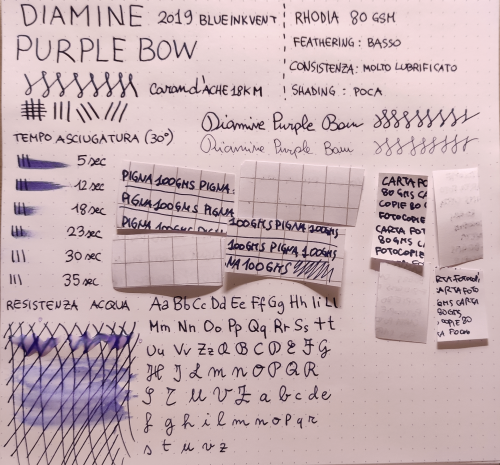 DIAMINE 2019 BLUE INKVENT
PURPLE BOW
Caran d'ACHE 18KM
RHODIA 80 GSM
FEATHERING: BASSO
CONSISTENZA: MOLTO LUBRIFICATO
SHADING: POCA
Diamine Purple Bow
Diamine Purple Bow
TEMPO ASCIUGATURA (30°)
5 sec
12 sec
18 sec
23 sec
30 sec
35 sec
PIGNA 100GMS PIGNA
PIGNA 100GMS PIGNA
PIGNA 100GMS PIGNA
100GMS PIGNA 100GMS
100GMS PIGNA 100GMS
NA 100GMS
CARTA FO
80 GMS C
COPIE 80 G
FOTOCOPIE
CARTA FOT
80 GMS CA
FOTOCOPIE
RTA FOTOCO
CARTA FOTO
GMS CARTA
80GMS
COPIE 80
RESISTENZA ACQUA
Aa Bb Cc Dd Ee Ff Gg Hh Ii Ll
Mm Nn Oo Pp Qq Rr Ss tt
Uu Vv Zz A B C D E F G
H I L M N O P Q R
S T U V Z a b c d e
f g h i l m n o p q r
s t u v z